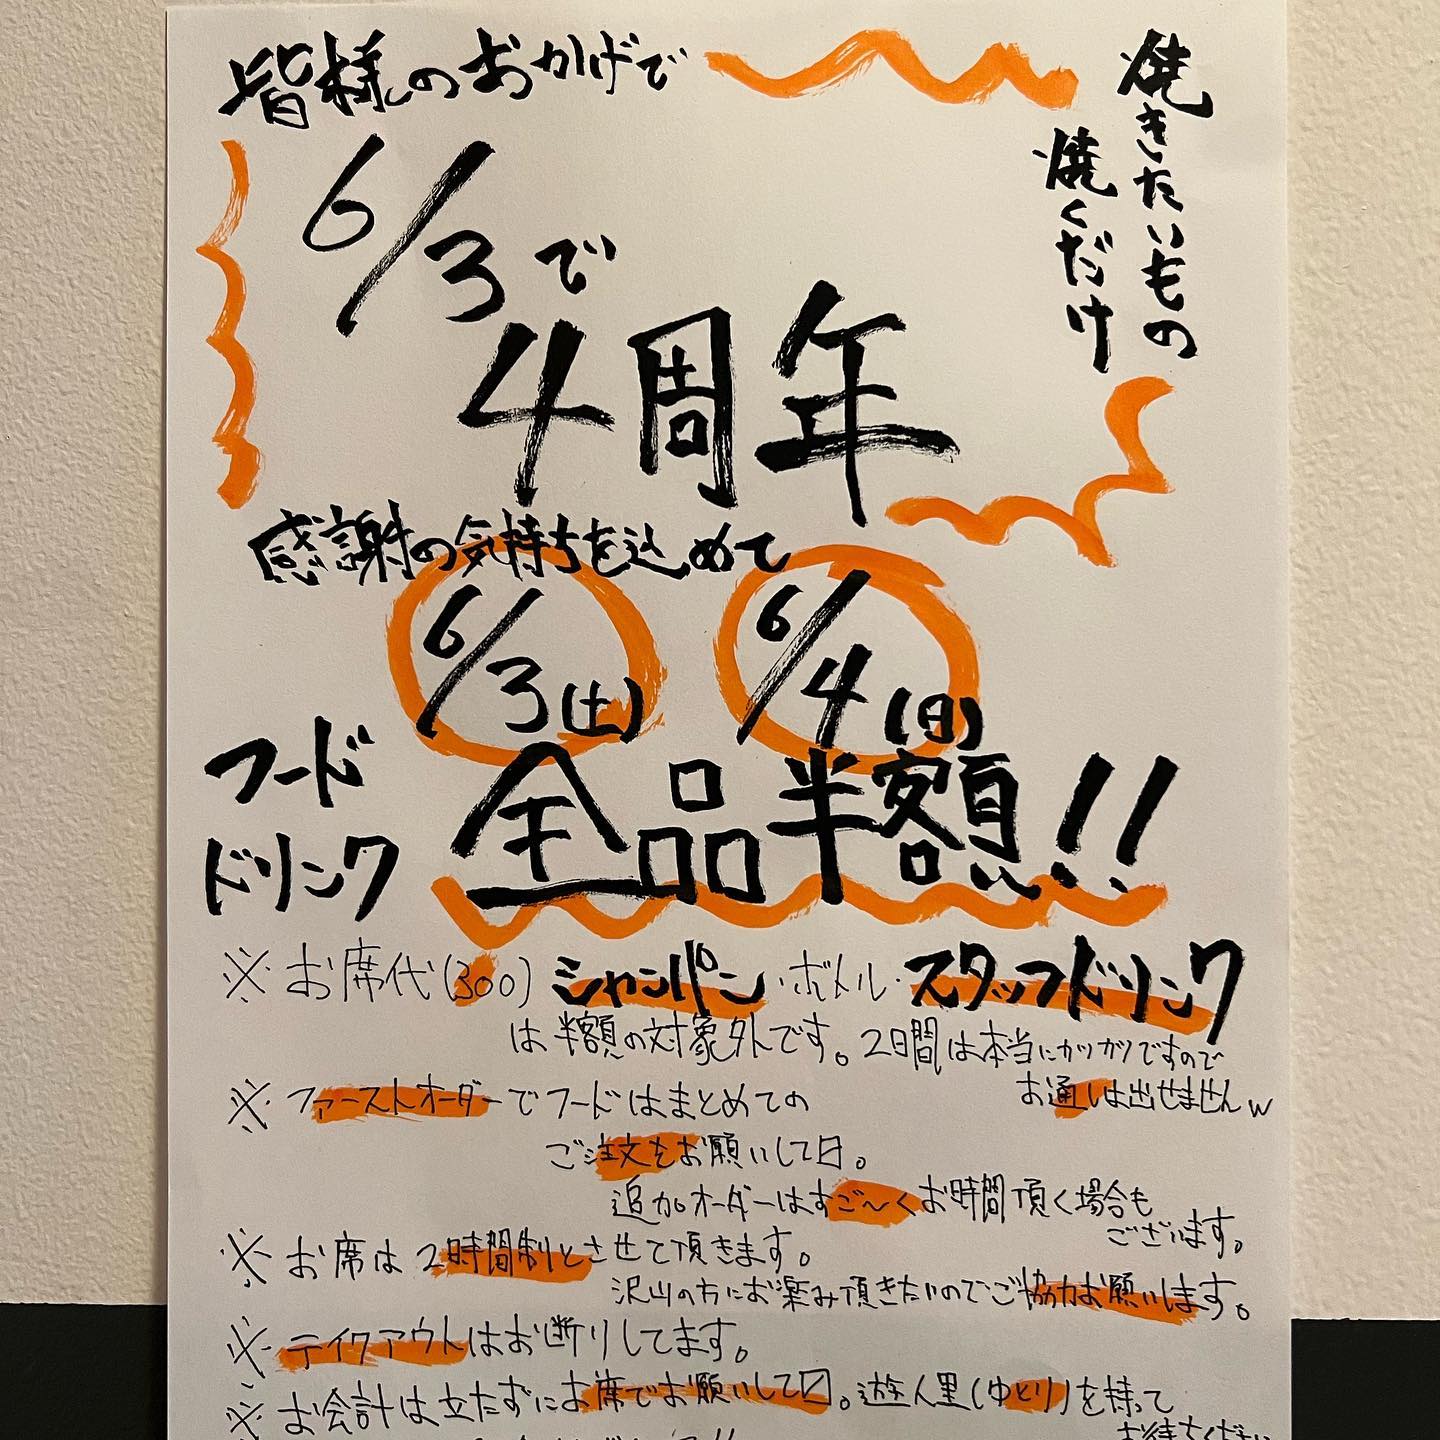 焼きたいもの
焼くだけ
皆様のおかげで
6/3で
4周年
感謝の気持ちを込めて
6/3(土) 6/4(日)
フード
ドリンク
全品半額!!
※お席代(300)シャンパン・ボトル・スタッフドリンク
は半額の対象外です。2日間は本当にカツカツですので
お通しは出せませんw
※ファーストオーダーでフードはまとめての
ご注文をお願いして〼。
追加オーダーはすご〜くお時間頂く場合も
ございます。
※お席は2時間制とさせて頂きます。
沢山の方にお楽み頂きたいのでご協力お願いします。
※テイクアウトはお断りしてます。
※お会計は立たずにお席でお願いして〼。遊人里(ゆとり)を持って
お待ちください